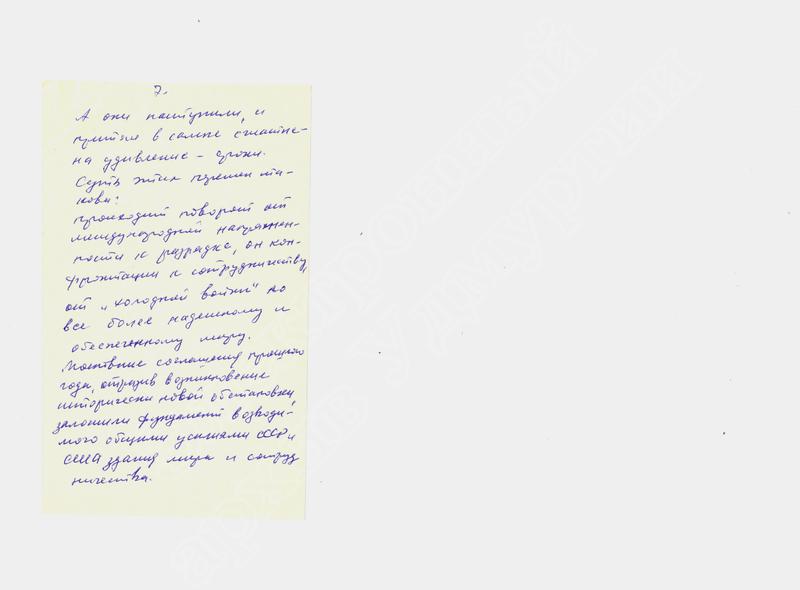 7.
А они наступили, и
притом в самые сжатые
на удивление – сроки.
Суть этих перемен та-
кова:
происходит поворот от
международной напряжен-
ности к разрядке, от кон-
фронтации к сотрудничеству,
от „холодной войны" ко
все более надежному и
обеспеченному миру.
Московские соглашения прошлого
года, отразив возникновение
исторически новой обстановки,
заложили фундамент возводи-
мого общими усилиями СССР и
США здания мира и сотруд
ничества.